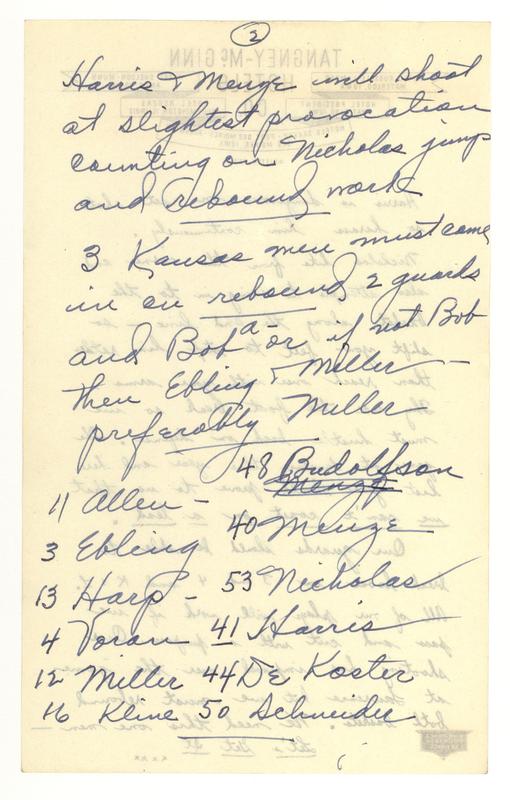 2
Harris & Menze will shoot
at slightest provocation
counting on Nicholas jump
and rebound work
3 Kansas men must come
in on rebound, 2 guards
and Bob a - or if not Bob
then Ebling & Miller -
preferably Miller
48 Budolfson
Menze
11 Allen -
40 Menze
3 Ebling
53 Nicholas
13 Harp -
4 Voran 41 Harris
12 Miller 44 De Koster
16 Kline 50 Schneider